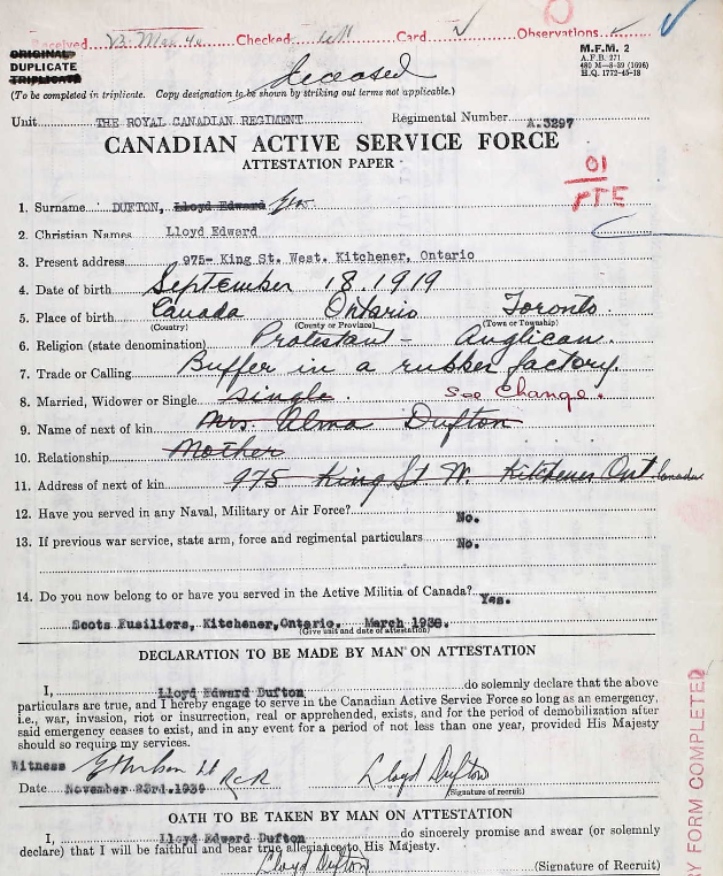 Received 13 Mar 40 Checked Card ✓ Observations ✓
ORIGINAL
DUPLICATE
TRIPLICATE
deceased
M.F.M. 2
A.F.B. 271
480 M—8-39 (1696)
H.Q. 1772-45-18
(To be completed in triplicate. Copy designation to be shown by striking out terms not applicable.)
Unit THE ROYAL CANADIAN REGIMENT Regimental Number A.3297
CANADIAN ACTIVE SERVICE FORCE
ATTESTATION PAPER
01
PTE
1. Surname DUFTON, Lloyd Edward
2. Christian Names Lloyd Edward
3. Present address 975- King St. West. Kitchener, Ontario
4. Date of birth September 18. 1919
5. Place of birth Canada Ontario Toronto.
(Country) (County or Province) (Town or Township)
6. Religion (state denomination) Protestant - Anglican.
7. Trade or Calling Buffer in a rubber factory.
8. Married, Widower or Single single. See Change.
9. Name of next of kin Mrs. Alma Dufton
10. Relationship Mother
11. Address of next of kin 975 King St W. Kitchener Ont. Canada
12. Have you served in any Naval, Military or Air Force? No.
13. If previous war service, state arm, force and regimental particulars No.
14. Do you now belong to or have you served in the Active Militia of Canada? Yes.
Scots Fusiliers, Kitchener, Ontario. March 1938.
(Give unit and date of attestation)
DECLARATION TO BE MADE BY MAN ON ATTESTATION
I, Lloyd Edward Dufton do solemnly declare that the above
particulars are true, and I hereby engage to serve in the Canadian Active Service Force so long as an emergency,
i.e., war, invasion, riot or insurrection, real or apprehended, exists, and for the period of demobilization after
said emergency ceases to exist, and in any event for a period of not less than one year, provided His Majesty
should so require my services.
Witness Lt RCR Lloyd Dufton
Date November 23rd. 1939 (Signature of recruit)
OATH TO BE TAKEN BY MAN ON ATTESTATION
I, Lloyd Edward Dufton do sincerely promise and swear (or solemnly
declare) that I will be faithful and bear true allegiance to His Majesty.
Lloyd Dufton (Signature of Recruit)
RY FORM COMPLETED